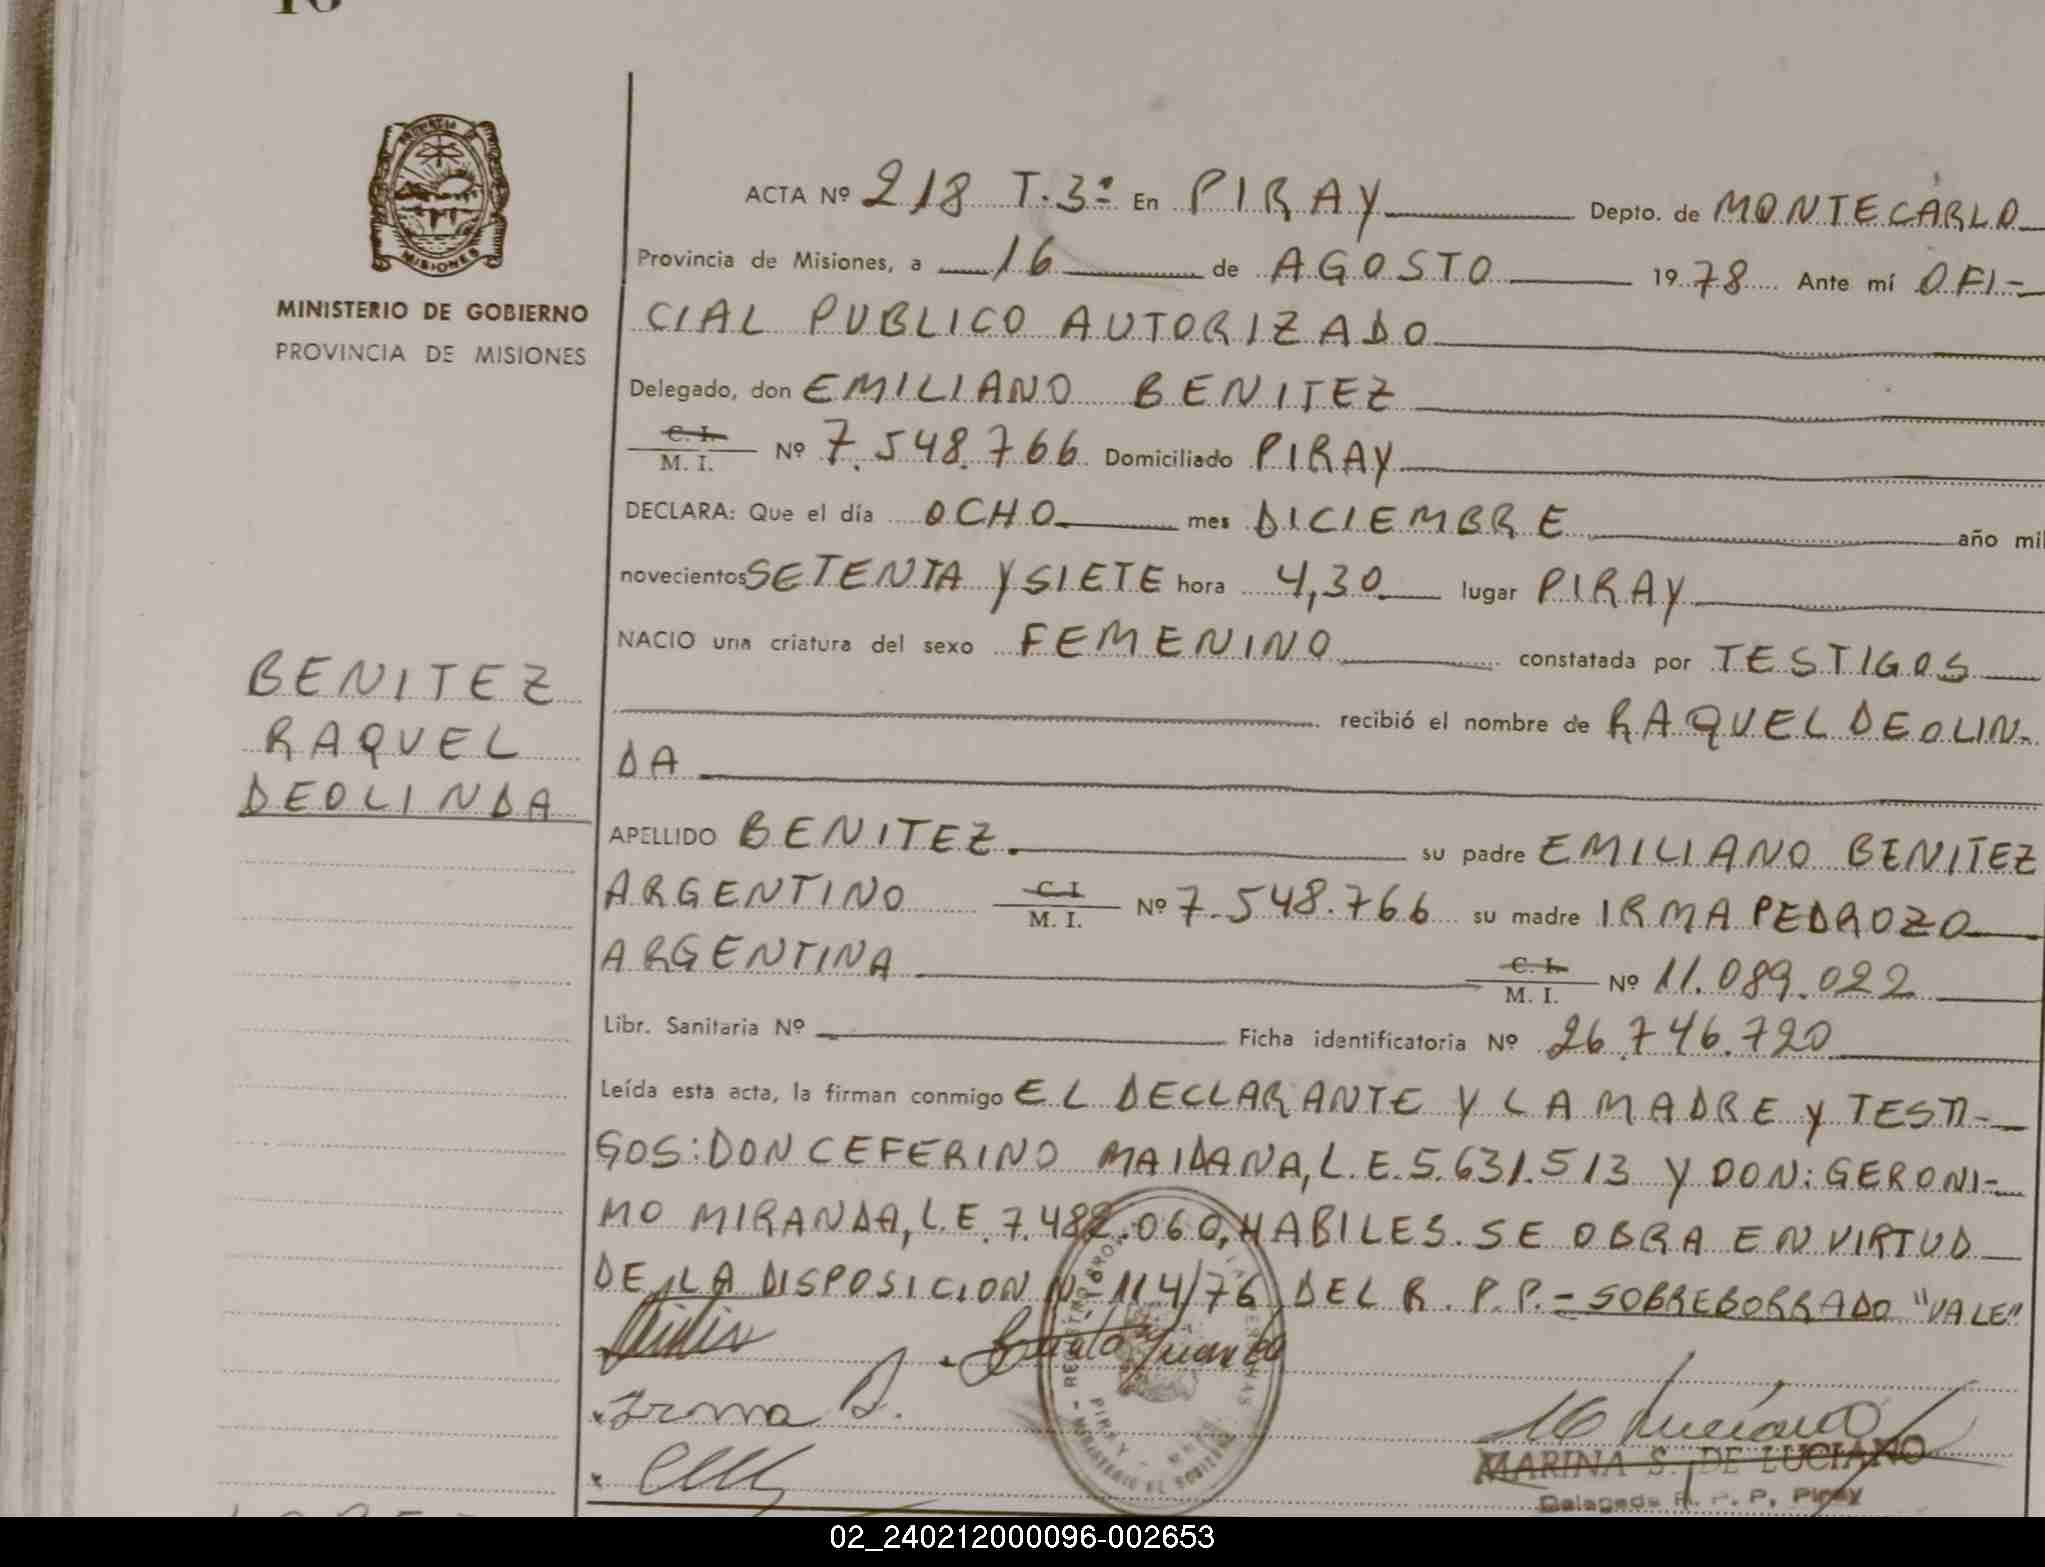 MISIONES
MINISTERIO DE GOBIERNO
PROVINCIA DE MISIONES
BENITEZ
RAQUEL
DEOLINDA
ACTA Nº 218 T.3º En PIRAY Depto. de MONTECARLO
Provincia de Misiones, a 16 de AGOSTO 1978 Ante mí OFI-
CIAL PUBLICO AUTORIZADO
Delegado, don EMILIANO BENITEZ
C. I.
M. I. Nº 7.548.766 Domiciliado PIRAY
DECLARA: Que el día OCHO mes DICIEMBRE año mil
novecientos SETENTA Y SIETE hora 4,30 lugar PIRAY
NACIO una criatura del sexo FEMENINO constatada por TESTIGOS
recibió el nombre de RAQUEL DEOLIN-
DA
APELLIDO BENITEZ. su padre EMILIANO BENITEZ
ARGENTINO C. I. M. I. Nº 7.548.766 su madre IRMA PEDROZO
ARGENTINA C. I. M. I. Nº 11.089.022
Libr. Sanitaria Nº Ficha identificatoria Nº 26.746.720
Leída esta acta, la firman conmigo EL DECLARANTE Y LA MADRE Y TESTI-
GOS: DON CEFERINO MAIDANA, L.E. 5.631.513 Y DON: GERONI-
MO MIRANDA, L.E. 7.482.060, HABILES. SE OBRA EN VIRTUD
DE LA DISPOSICION Nº 114/76 DEL R.P.P.- SOBREBORRADO "VALE"
Irma P.
MARINA S. DE LUCIANO
Delegada R. P. P. Piray
02_240212000096-002653